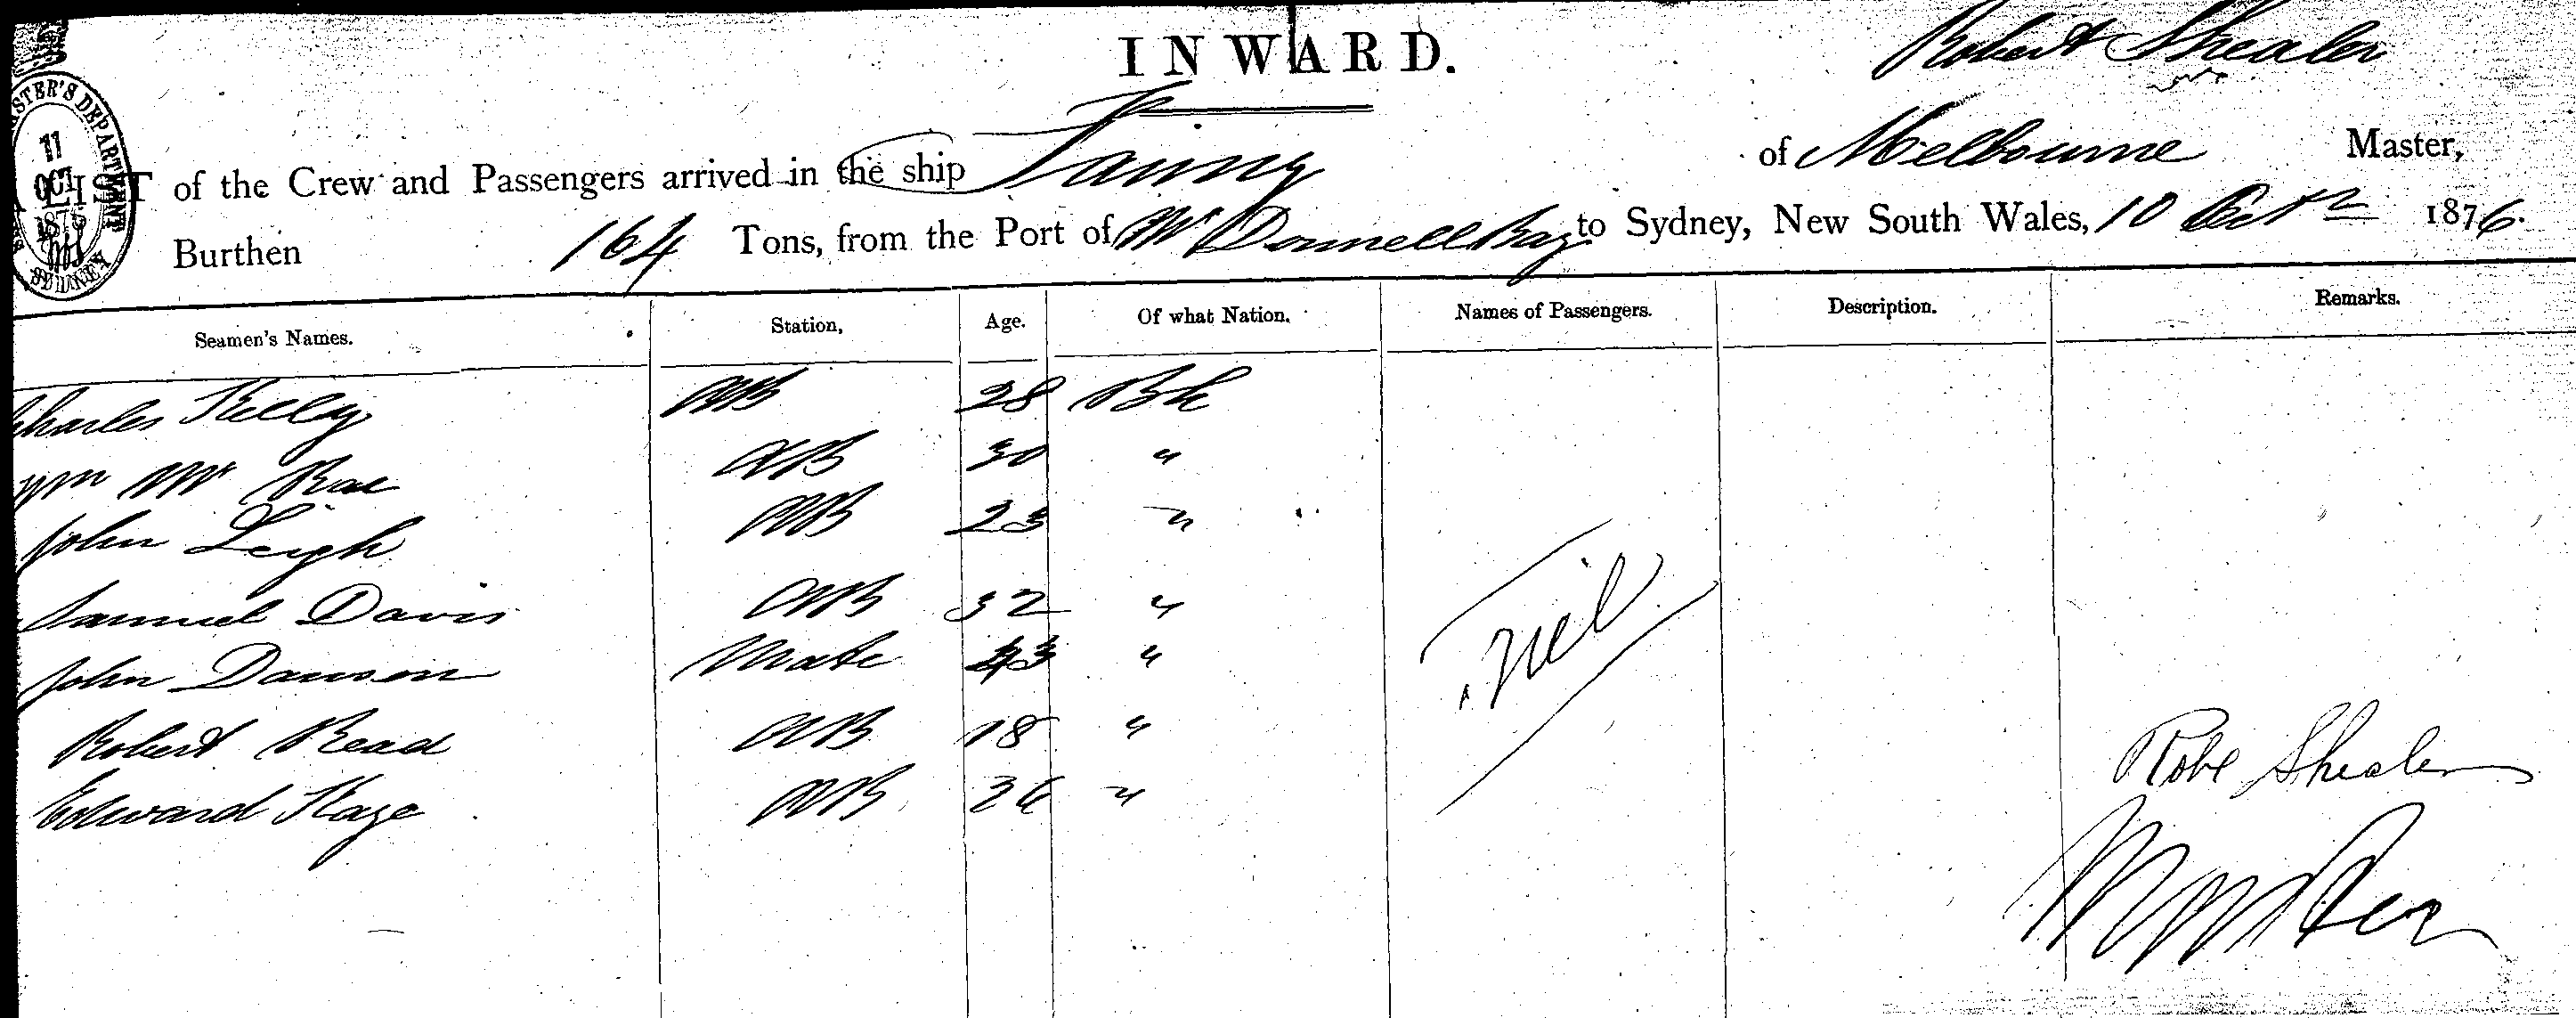 INWARD.
Robert Shealer
STER'S DEPARTMENT
11
OCT
187
SYDNEY
A LIST of the Crew and Passengers arrived in the ship Fanny of Melbourne Master,
Burthen 164 Tons, from the Port of Mc Donnell Bay to Sydney, New South Wales, 10 Octr 1876.
Seamen's Names. Station, Age. Of what Nation. Names of Passengers. Description. Remarks.
Charles Kelly AB 28 Bh
Wm Mc Rae AB 30 "
John Leigh AB 23 "
Samuel Davis AB 32 "
John Dawson Mate 43 "
Nil
Robert Read AB 18 "
Robt Shealer
Edward Kaye AB 36 "
Master